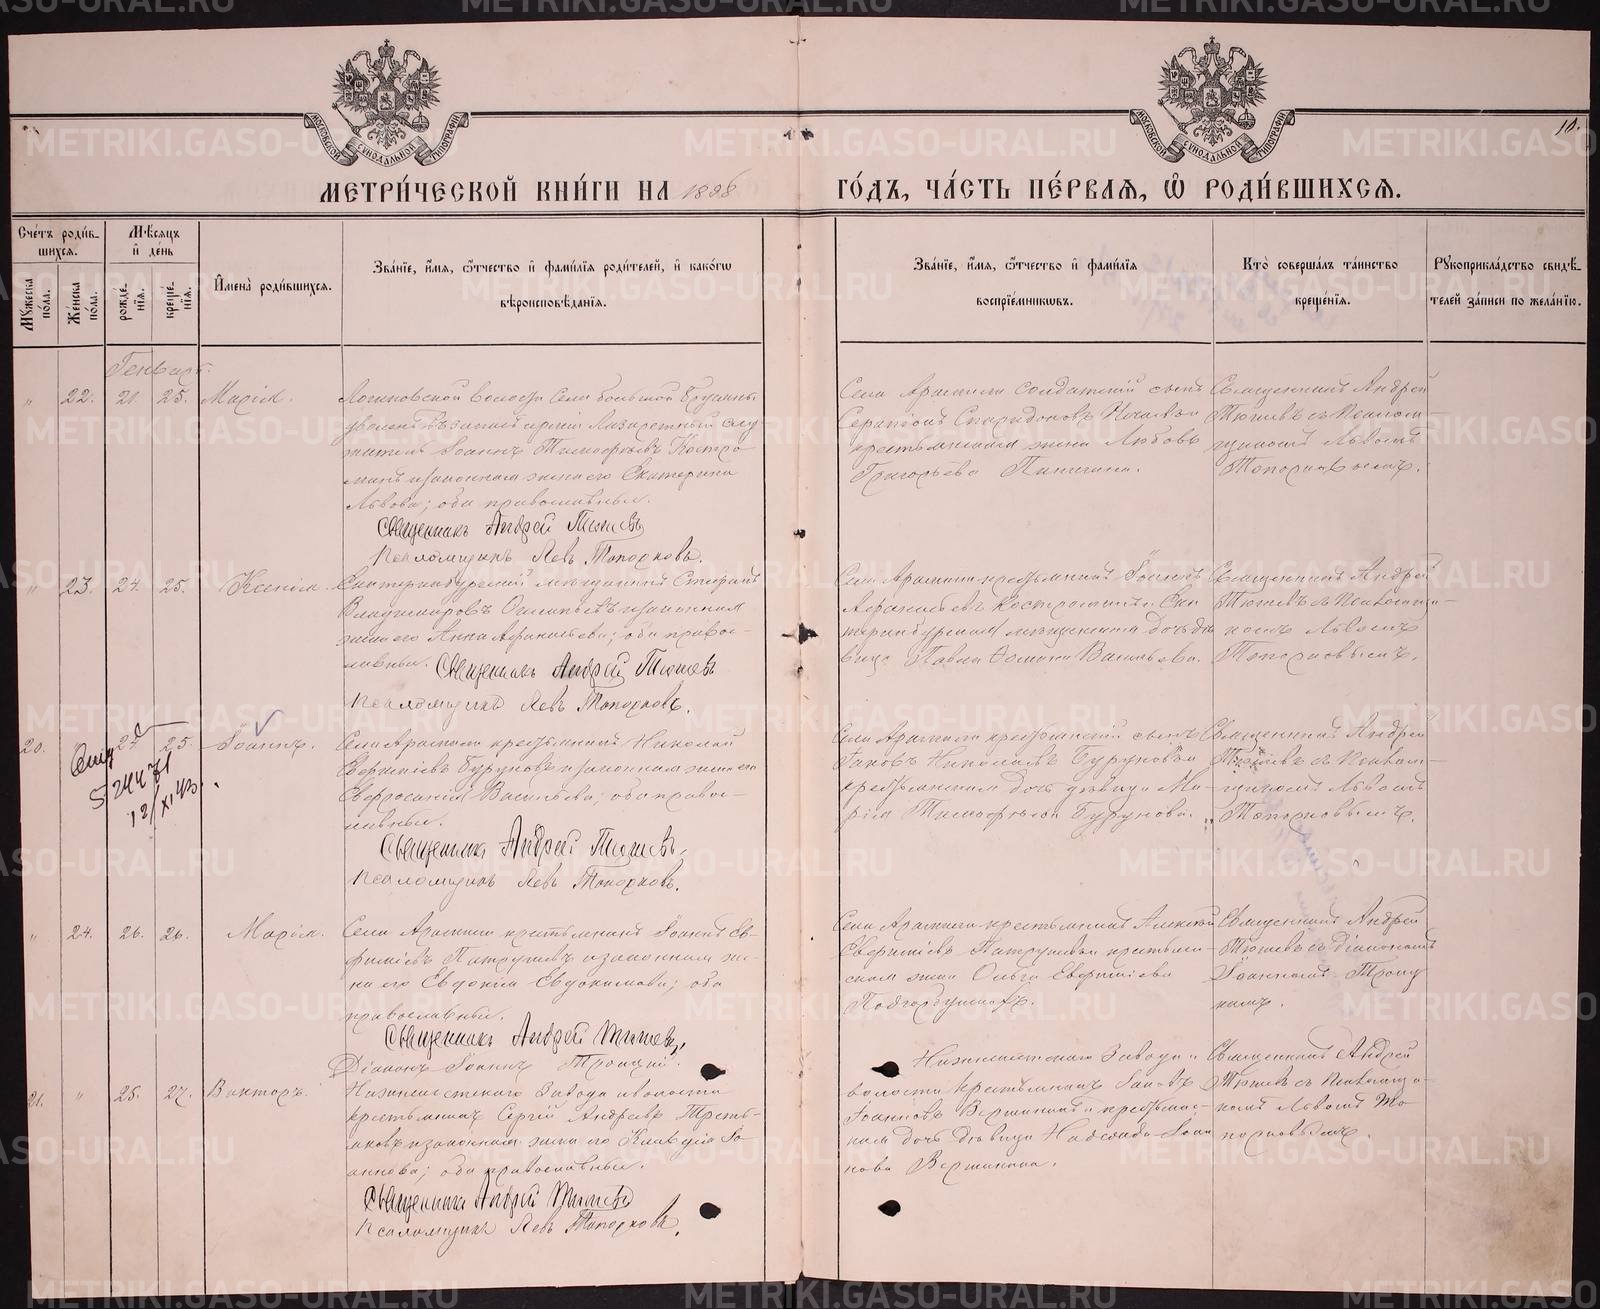 МЕТРИ́ЧЕСКОЙ КНИ́ГИ НА 1898 ГО́ДЪ, ЧА́СТЬ ПЕ́РВАЯ, Ѡ РОДИ́ВШИХСѦ.
МОСКОВСКОЙ СѴНОДАЛЬНОЙ ТИПОГРАФІИ
МОСКОВСКОЙ СѴНОДАЛЬНОЙ ТИПОГРАФІИ
Сче́тъ роди́в-
шихсѧ.
Мꙋ́жеска по́ла.
Же́нска по́ла.
Мѣ́сѧцъ
и҆ де́нь
рожде́нїѧ.
креще́нїѧ.
И҆мена̀ роди́вшихсѧ.
Зва́нїе, и҆́мѧ, ѻ҆́тчество и҆ фамилїѧ роди́телей, и҆ како́гѡ
вѣроисповѣ́данїѧ.
Зва́нїе, и҆́мѧ, ѻ҆́тчество и҆ фами́лїѧ
воспрїе́мникѡвъ.
Кто̀ соверша́лъ та́инство
креще́нїѧ.
Рꙋкоприкла́дство свидѣ́-
телей за́писи по жела́нїю.
Генварь.
22. 21. 25. Марія.
Логиновской волости Села большой Брусяны
житель Іоаннъ Тимофеевъ Костро
минъ и законная жена его Екатерина
Львова; оба православные.
Священникъ Андрей Тюшевъ
Псаломщикъ Левъ Топорковъ.
Села Арамили солдатскій сынъ
Серапіонъ Спиридоновъ
крестьянская жена Любовь
Григорьева
Священникъ Андрей
Тюшевъ съ Псалом-
щикомъ Львомъ
Топорковымъ.
23. 24. 25. Ксенія.
Екатеринбургскій мѣщанинъ Стефанъ
Владимировъ и законная
жена его Анна Афанасьева; оба право-
славные. Священникъ Андрей Тюшевъ
Псаломщикъ Левъ Топорковъ.
Села Арамили крестьянинъ Іоаннъ
Афанасьевъ Костроминъ и Ека
теринбургская мѣщанская дочь дѣ
вица Павла Васильева.
Священникъ Андрей
Тюшевъ съ Псаломщи-
комъ Львомъ
Топорковымъ.
20. 24. 25. Іоаннъ.
12/XI 43
Села Арамили крестьянинъ Николай
Евфиміевъ Буруновъ и законная жена его
Евфросинія Васильева; оба право-
славные.
Священникъ Андрей Тюшевъ.
Псаломщикъ Левъ Топорковъ.
Села Арамили крестьянскій сынъ
Іаковъ Николаевъ Буруновъ и
крестьянская дочь дѣвица Ма-
рія Тимофеева Бурунова.
Священникъ Андрей
Тюшевъ съ Псалом-
щикомъ Львомъ
Топорковымъ.
24. 26. 26. Марія.
Села Арамили крестьянинъ Іоаннъ Ев-
фиміевъ Патрушевъ и законная же-
на его Евдокія Евдокимова; оба
православные.
Священникъ Андрей Тюшевъ,
Діаконъ Іоаннъ Троицкій.
Села Арамили крестьянинъ Алексѣй
Евфиміевъ Патрушевъ и крестьян-
ская жена Ольга Евфиміева
Священникъ Андрей
Тюшевъ съ Діакономъ
Іоанномъ Троиц
кимъ.
21. 25. 27. Викторъ.
Нижнеисетскаго Завода и волости
крестьянинъ Сергій Андреевъ Треть-
яковъ и законная жена его Клавдія Іо-
аннова; оба православные.
Священникъ Андрей Тюшевъ
Псаломщикъ Левъ Топорковъ.
Нижнеисетскаго Завода и
волости крестьянинъ Іаковъ
Іоанновъ Вершининъ и крестьянс-
кая дочь дѣвица Надежда Іоан
нова Вершинина.
Священникъ Андрей
Тюшевъ съ Псаломщи-
комъ Львомъ То
порковымъ.
METRIKI.GASO-URAL.RU